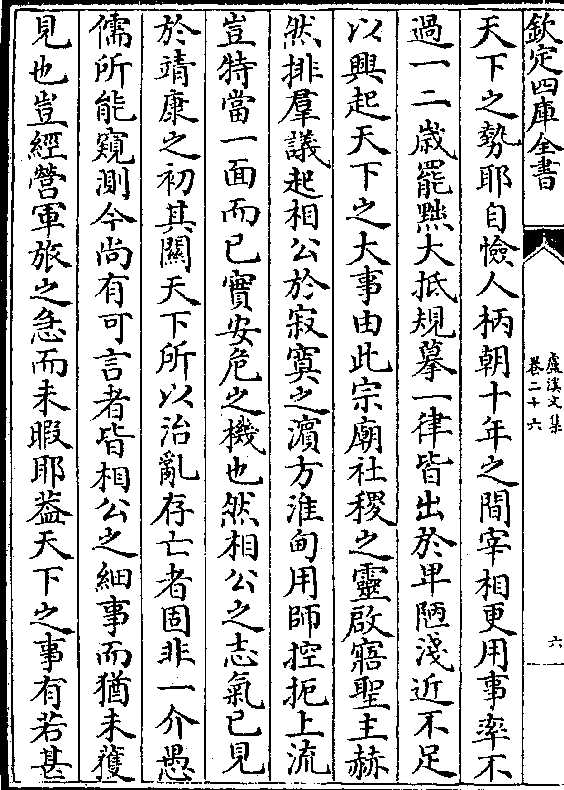 欽定四庫全書
盧溪文集
卷二十六
六
天下之勢耶自憸人柄朝十年之間宰相更用事率不
過一二歲罷黜大抵規摹一律皆出於卑陋淺近不足
以興起天下之大事由此宗廟社稷之靈啟寤聖主赫
然排羣議起相公於寂寞之濵方淮甸用師控扼上流
豈特當一面而已實安危之機也然相公之志氣已見
於靖康之初其關天下所以治亂存亡者固非一介愚
儒所能窺測今尚有可言者皆相公之細事而猶未獲
見也豈經營軍旅之急而未暇耶葢天下之事有若甚